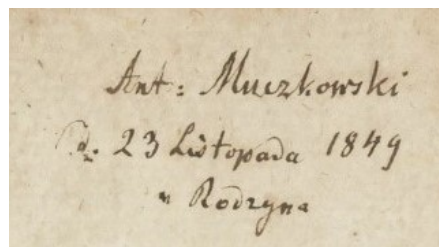 Ant: Muczkowski
d. 23 Listopada 1849
w Rodzyna